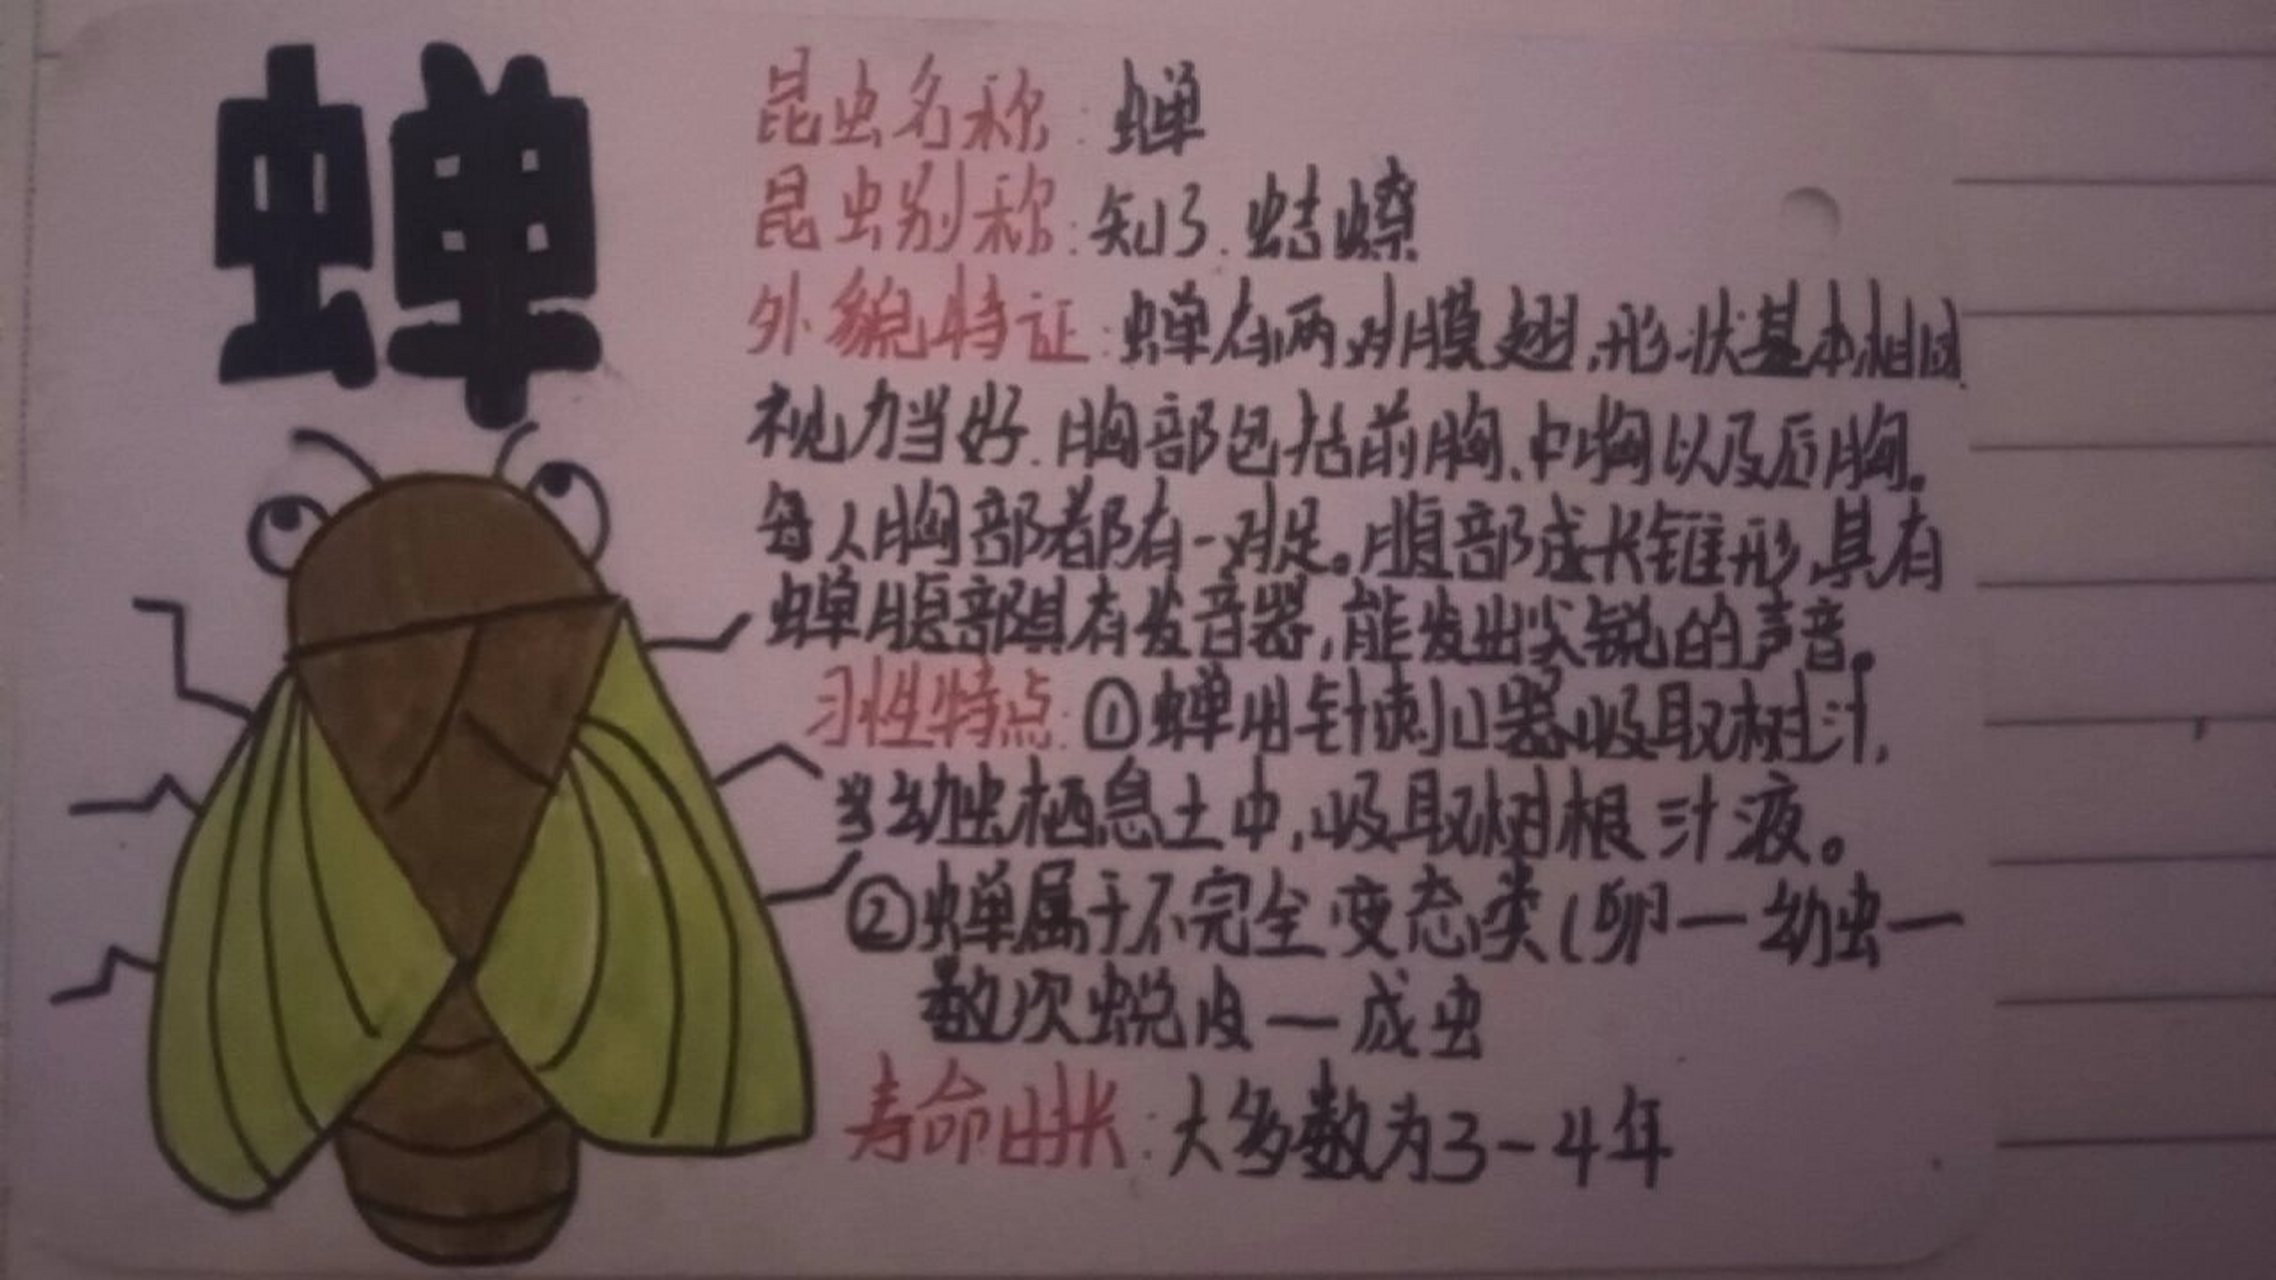 蝉
昆虫名称：蝉
昆虫别称：知了.蛣蟟
外貌特证：蝉有两对膜翅,形状基本相同
视力当好.胸部包括前胸、中胸以及后胸。
每人胸部都有一对足。腹部成长锥形,具有
蝉腹部具有发音器,能发出尖锐的声音。
习性特点:①蝉用针刺口器吸取树汁,
当幼虫栖息土中,吸取树根汁液。
②蝉属于不完全变态类(卵—幼虫—
数次蜕皮—成虫
寿命时长:大多数为3-4年